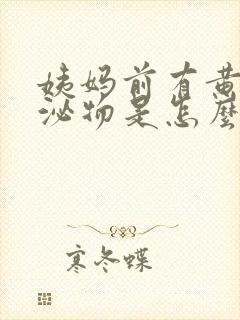 姨妈前有黄
泌物是怎麽
寒冬蝶